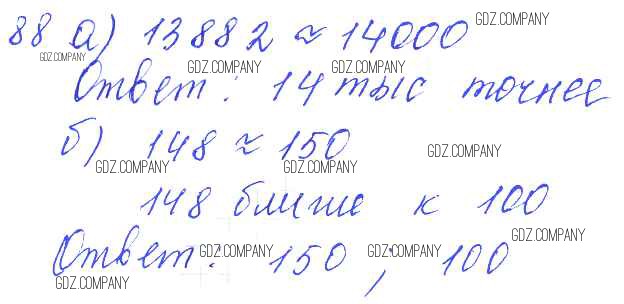 88 а) 13882 ≈ 14000
Ответ: 14 тыс точнее
б) 148 ≈ 150
148 ближе к 100
Ответ: 150; 100
GDZ.COMPANY
GDZ.COMPANY
GDZ.COMPANY
GDZ.COMPANY
GDZ.COMPANY
GDZ.COMPANY
GDZ.COMPANY
GDZ.COMPANY
GDZ.COMPANY
GDZ.COMPANY
GDZ.COMPANY